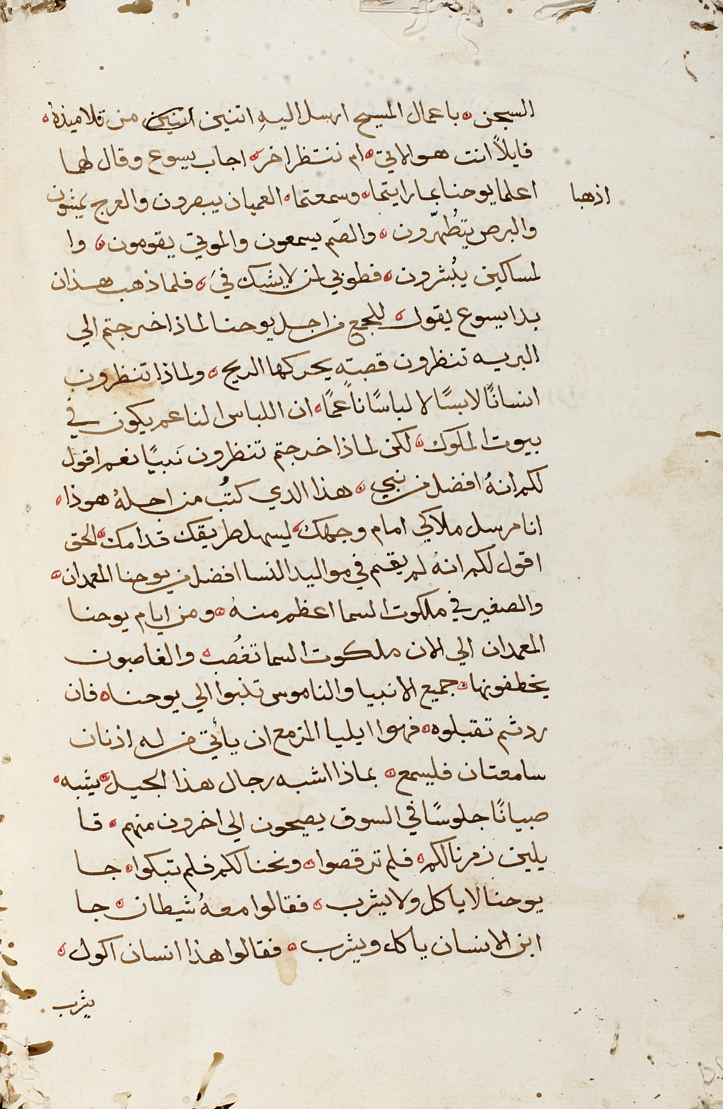 السجن باعمال المسيح ارسل اليه اتنين اتنين من تلاميذه
قايلاً انت هو الاتي ام ننتظر اخر اجاب يسوع وقال لهما
اذهبا
اعلما يوحنا بما رايتما وسمعتما العميان يبصرون والعرج يمشون
والبرص يتطهّرون والصّم يسمعون والموتي يقومون وا
لمساكين يبُشرون فطوبي لمن لا يشك فيّ فلما ذهب هذان
بدا يسوع يقول للجمع من اجل يوحنا لماذا خرجتم الي
البريه تنظرون قصبته يحركها الريح ولماذا تنظرون
انسانًا لابسًا لا لباسًا ناعمًا ان اللباس الناعم يكون في
بيوت الملوك لكن لماذا خرجتم تنظرون نبيًا نعم اقول
لكم انهُ افضل من نبي هذا الدي كتُب من اجلهُ هوذا
انا مرسل ملاكي امام وجهك ليسهل طريقك قدامك الحق
اقول لكم انهُ لم يقم في مواليد النسا افضل من يوحنا المعمدان
والصغير في ملكوت السما اعظم منهُ ومن ايام يوحنا
المعمدان الي الان ملكوت السما تغُصب والغاصبون
يخطفونها جميع الانبيا والناموس تنبوا الي يوحنا فان
ردتم تقبلوه فهوا ايليا المزمع ان ياتي من له اذنان
سامعتان فليسمع بماذا اشبه رجال هذا الجيل يشبه
صبيانًا جلوسًا في السوق يصيحون الي اخرون منهم قا
يلين زمرنا لكم فلم ترقصوا ونحنا لكم فلم تبكوا جا
يوحنا لا ياكل ولا يشرب فقالوا معهُ شيطان جا
ابن الانسان ياكل ويشرب فقالوا هذا انسان اكول
يشرب